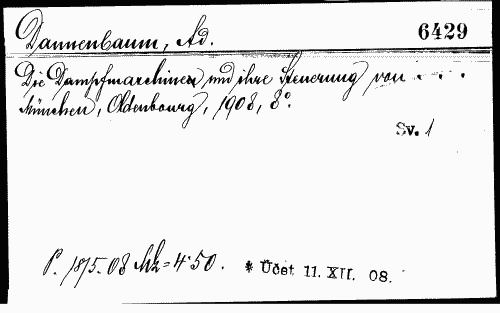 Dannenbaum, Ad. 6429
Die Dampfmaschinen und ihre Steuerung von . . . .
München, Oldenbourg, 1908, 8°.
Sv. 1
P. 1815.08 Mk = 4·50. * Účet 11. XII. 08.